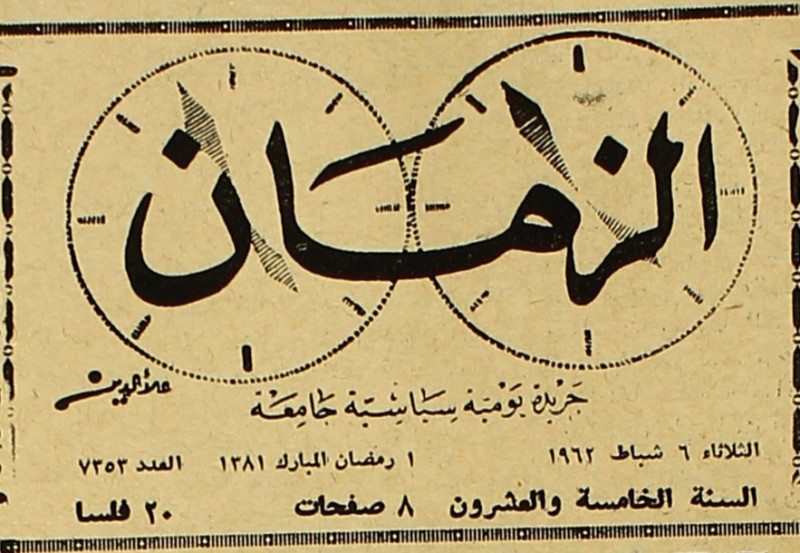 الزمان
علاء الدين
جريدة يومية سياسية جامعة
الثلاثاء ٦ شباط ١٩٦٢ ١ رمضان المبارك ١٣٨١ العدد ٧٣٥٣
السنة الخامسة والعشرون ٨ صفحات ٢٠ فلسا